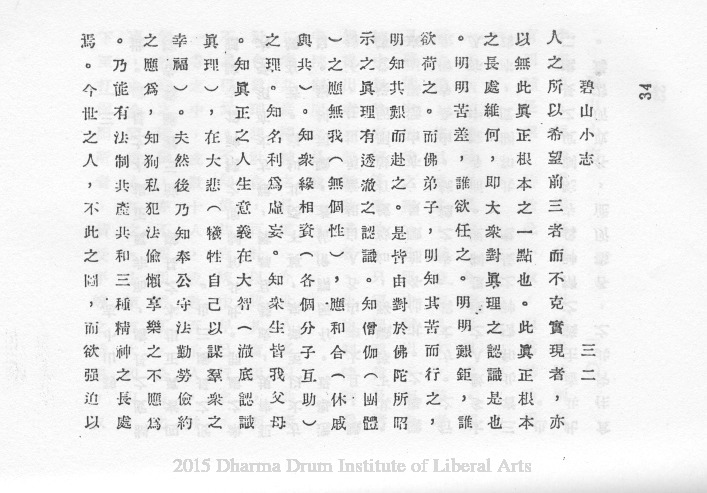 34
碧山小志　三二
人之所以希望前三者而不克實現者，亦
以無此眞正根本之一點也。此眞正根本
之長處維何，卽大衆對眞理之認識是也
。明明苦差，誰欲任之。明明艱鉅，誰
欲荷之。而佛弟子，明知其苦而行之，
明知其艱而赴之。是皆由對於佛陀所昭
示之眞理有透澈之認識。知僧伽（團體
）之應無我（無個性），應和合（休戚
與共）。知衆緣相資（各個分子互助）
之理。知名利爲虛妄。知衆生皆我父母
。知眞正之人生意義在大智（澈底認識
眞理），在大悲（犧牲自己以謀羣衆之
幸福）。夫然後乃知奉公守法勤勞儉約
之應爲，知狥私犯法偷懶享樂之不應爲
。乃能有法制共產共和三種精神之長處
焉。今世之人，不此之圖，而欲强迫以
2015 Dharma Drum Institute of Liberal Arts